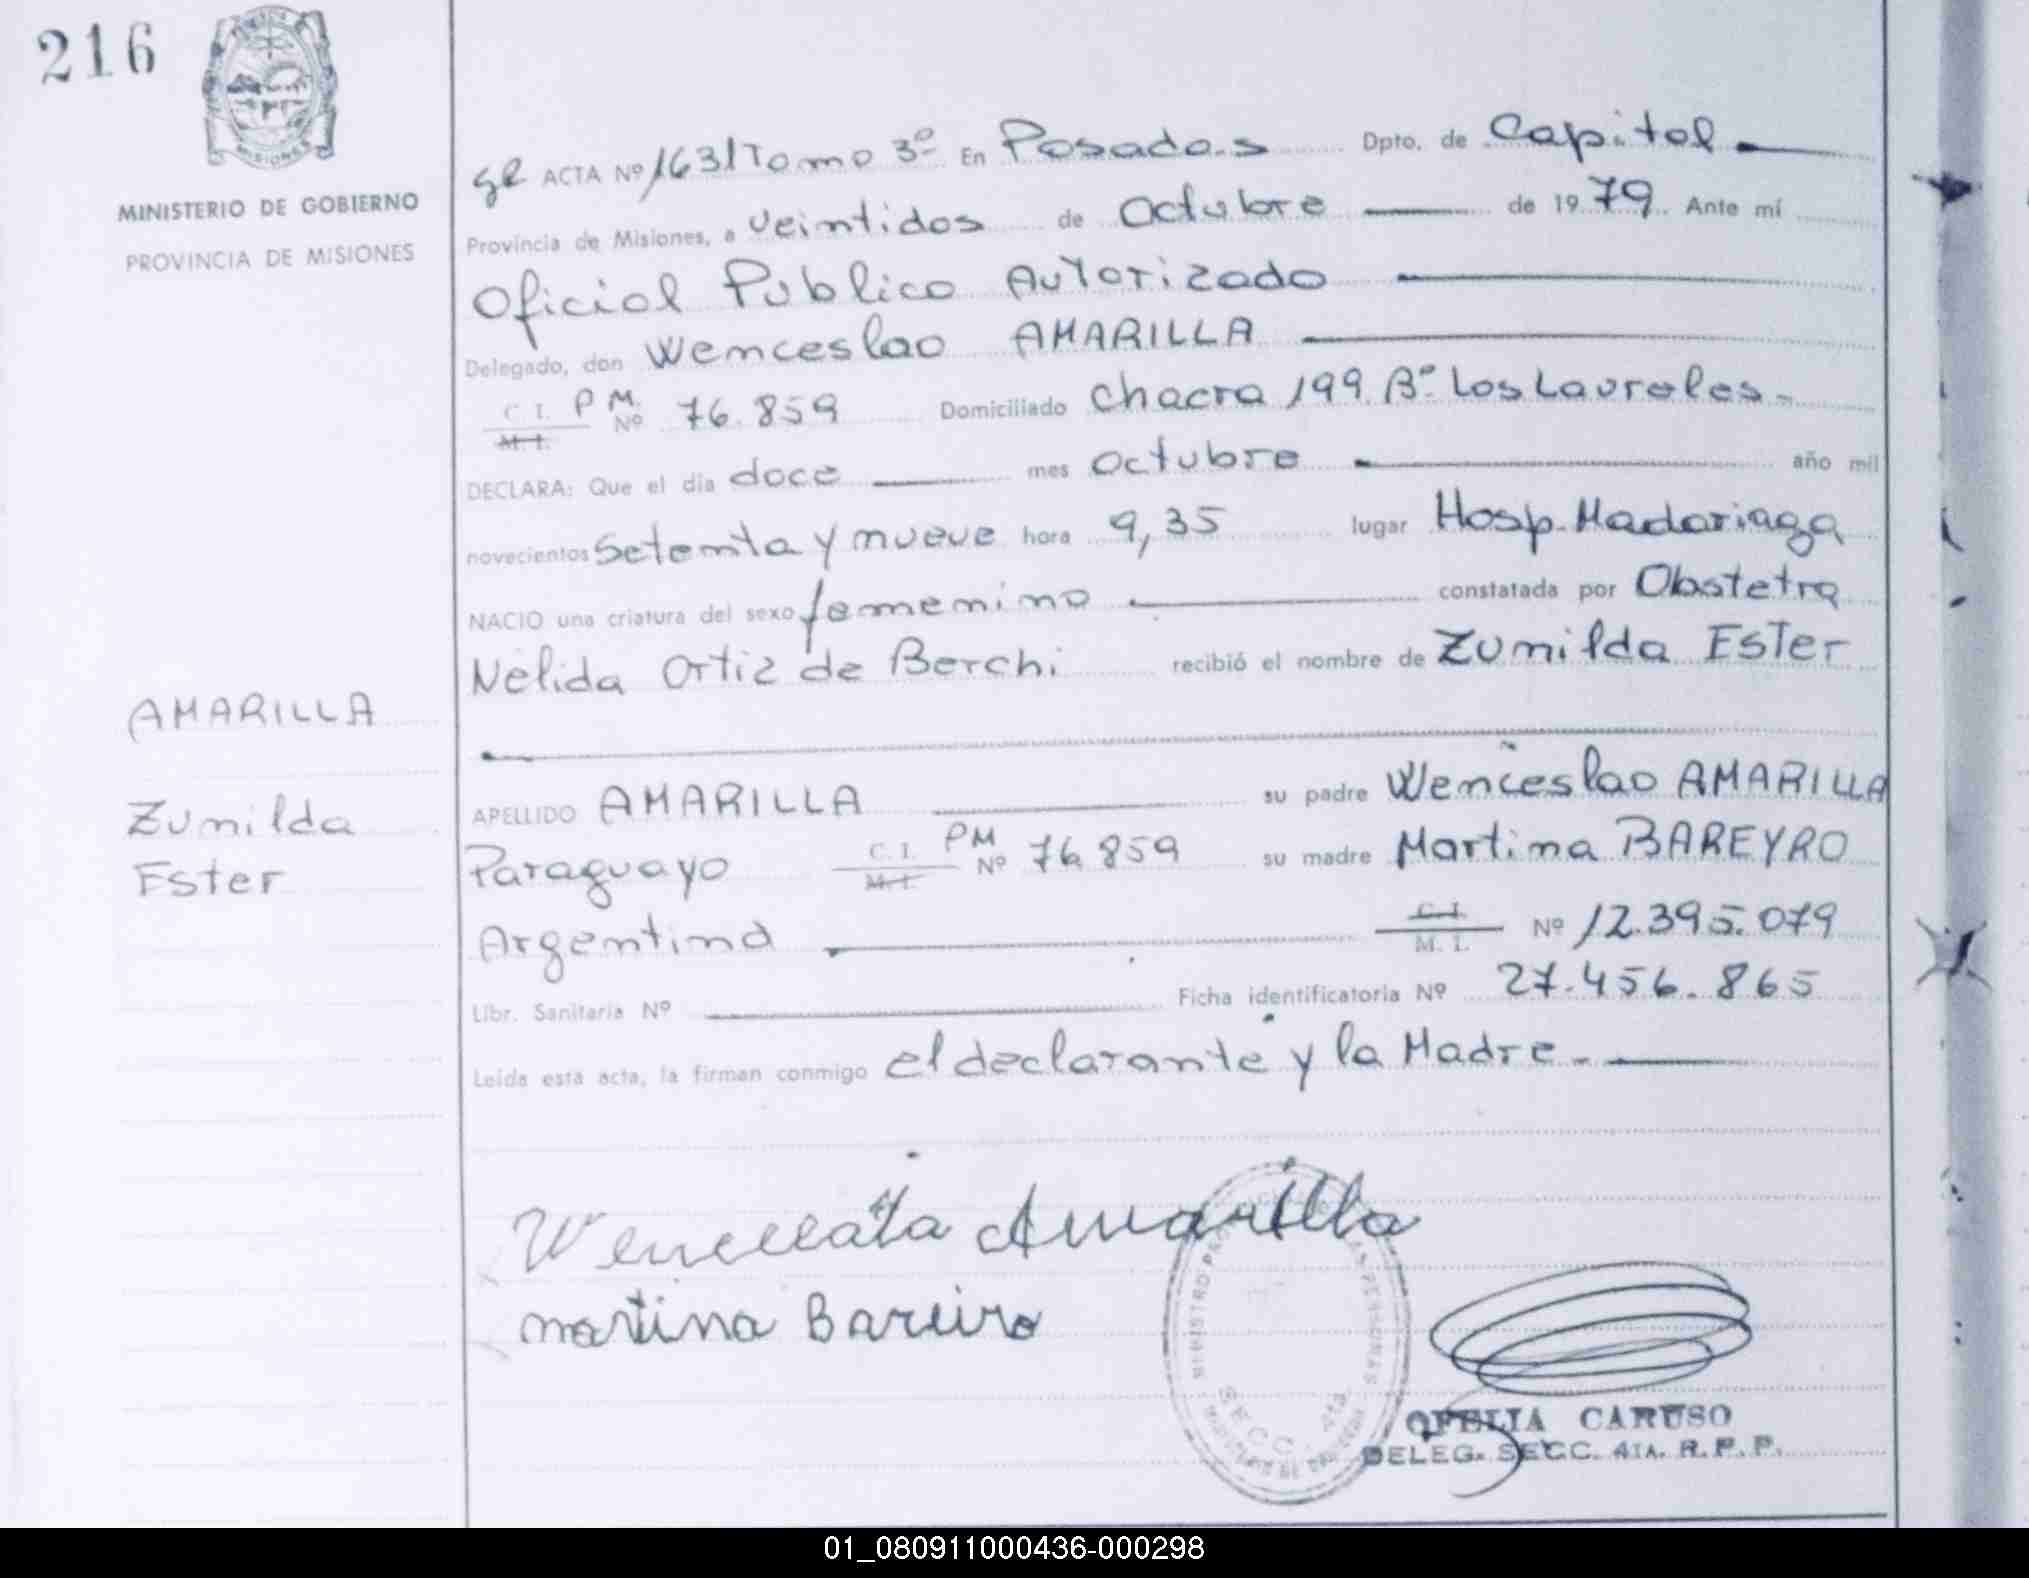 216
MINISTERIO DE GOBIERNO
PROVINCIA DE MISIONES
ACTA Nº 1631 Tomo 3º En Posadas Dpto. de Capital
Provincia de Misiones, a veintidos de Octubre de 1979 Ante mí
Oficial Publico Autorizado
Delegado, don Wenceslao AMARILLA
C. I. M. I. PM. Nº 76.859 Domiciliado Chacra 199 Bº Los Laureles
DECLARA: Que el día doce mes Octubre año mil
novecientos Setenta y nueve hora 9,35 lugar Hosp. Madariaga
NACIO una criatura del sexo femenino constatada por Obstetra
Nelida Ortiz de Berchi recibió el nombre de Zunilda Ester
AMARILLA
Zunilda
Ester
APELLIDO AMARILLA su padre Wenceslao AMARILLA
Paraguayo C. I. M. I. PM Nº 76.859 su madre Martina BAREYRO
Argentina C. I. M. I. Nº 12.395.079
Libr. Sanitaria Nº Ficha identificatoria Nº 27.456.865
Leída esta acta, la firman conmigo el declarante y la Madre
Amarilla
Martina Bareiro
OFELIA CARUSO
DELEG. SECC. 4TA. R. P. P.
01_080911000436-000298